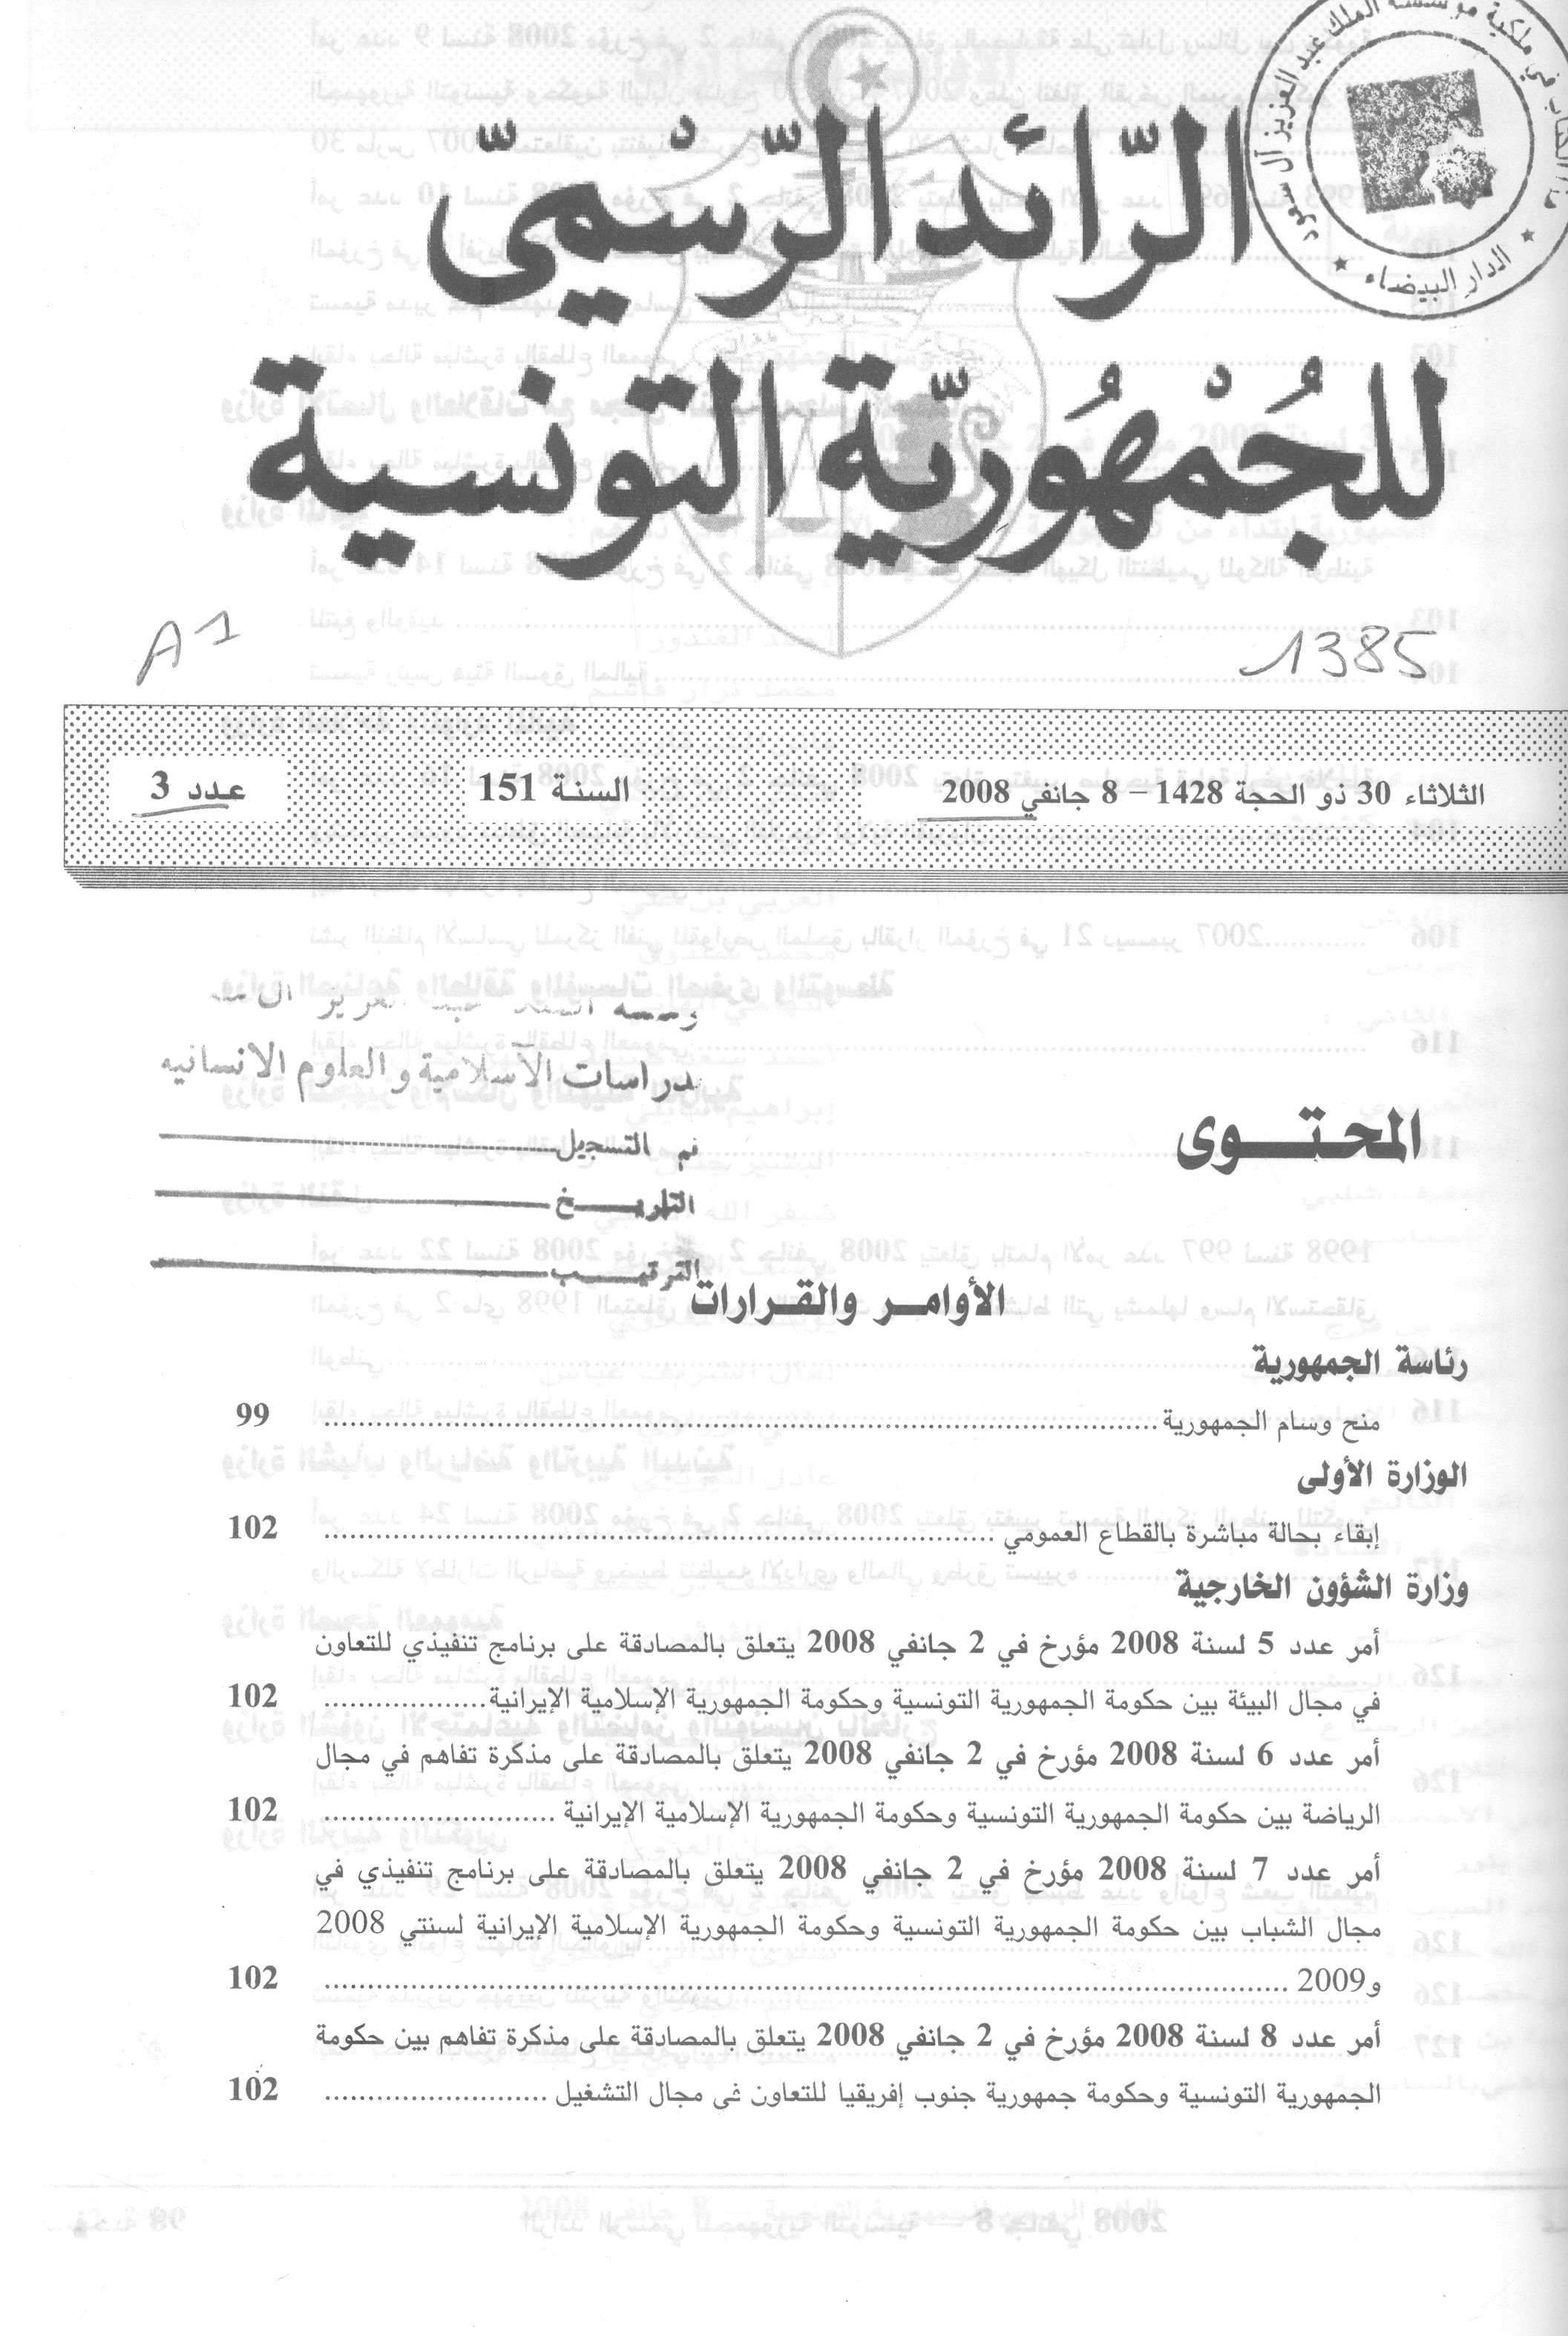 الرّائد الرّسْميّ
للجُمْهُوريّة التونسية
A1
1385
الثلاثاء 30 ذو الحجة 1428 – 8 جانفي 2008
السنة 151
عدد 3
عبد العزيز آل سعود
الدار البيضاء
الآسلامية والعلوم الانسانيه
التسجيل
التاريخ
الترتيب
المحتوى
الأوامر والقرارات
رئاسة الجمهورية
منح وسام الجمهورية ........ 99
الوزارة الأولى
إبقاء بحالة مباشرة بالقطاع العمومي ........ 102
وزارة الشؤون الخارجية
أمر عدد 5 لسنة 2008 مؤرخ في 2 جانفي 2008 يتعلق بالمصادقة على برنامج تنفيذي للتعاون
في مجال البيئة بين حكومة الجمهورية التونسية وحكومة الجمهورية الإسلامية الإيرانية ........ 102
أمر عدد 6 لسنة 2008 مؤرخ في 2 جانفي 2008 يتعلق بالمصادقة على مذكرة تفاهم في مجال
الرياضة بين حكومة الجمهورية التونسية وحكومة الجمهورية الإسلامية الإيرانية ........ 102
أمر عدد 7 لسنة 2008 مؤرخ في 2 جانفي 2008 يتعلق بالمصادقة على برنامج تنفيذي في
مجال الشباب بين حكومة الجمهورية التونسية وحكومة الجمهورية الإسلامية الإيرانية لسنتي 2008
و2009 ........ 102
أمر عدد 8 لسنة 2008 مؤرخ في 2 جانفي 2008 يتعلق بالمصادقة على مذكرة تفاهم بين حكومة
الجمهورية التونسية وحكومة جمهورية جنوب إفريقيا للتعاون في مجال التشغيل ........ 102